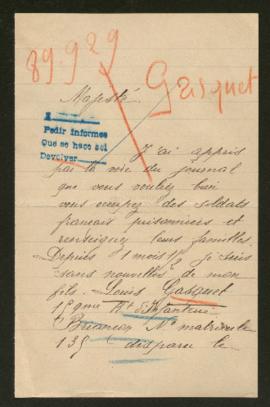 89.929
Gasquet
Majesté
Pedir informes
Que se hace así
Devolver
J'ai appris
par la voie du journal
que vous voulez bien
vous occupez des soldats
français prisonniers et
renseigner leurs familles.
Depuis 1 mois ½ je suis
sans nouvelles de mon
fils. Louis Gasquet
15 ème Rt d'Infanterie
Briançon Nº matricule
135 disparu le